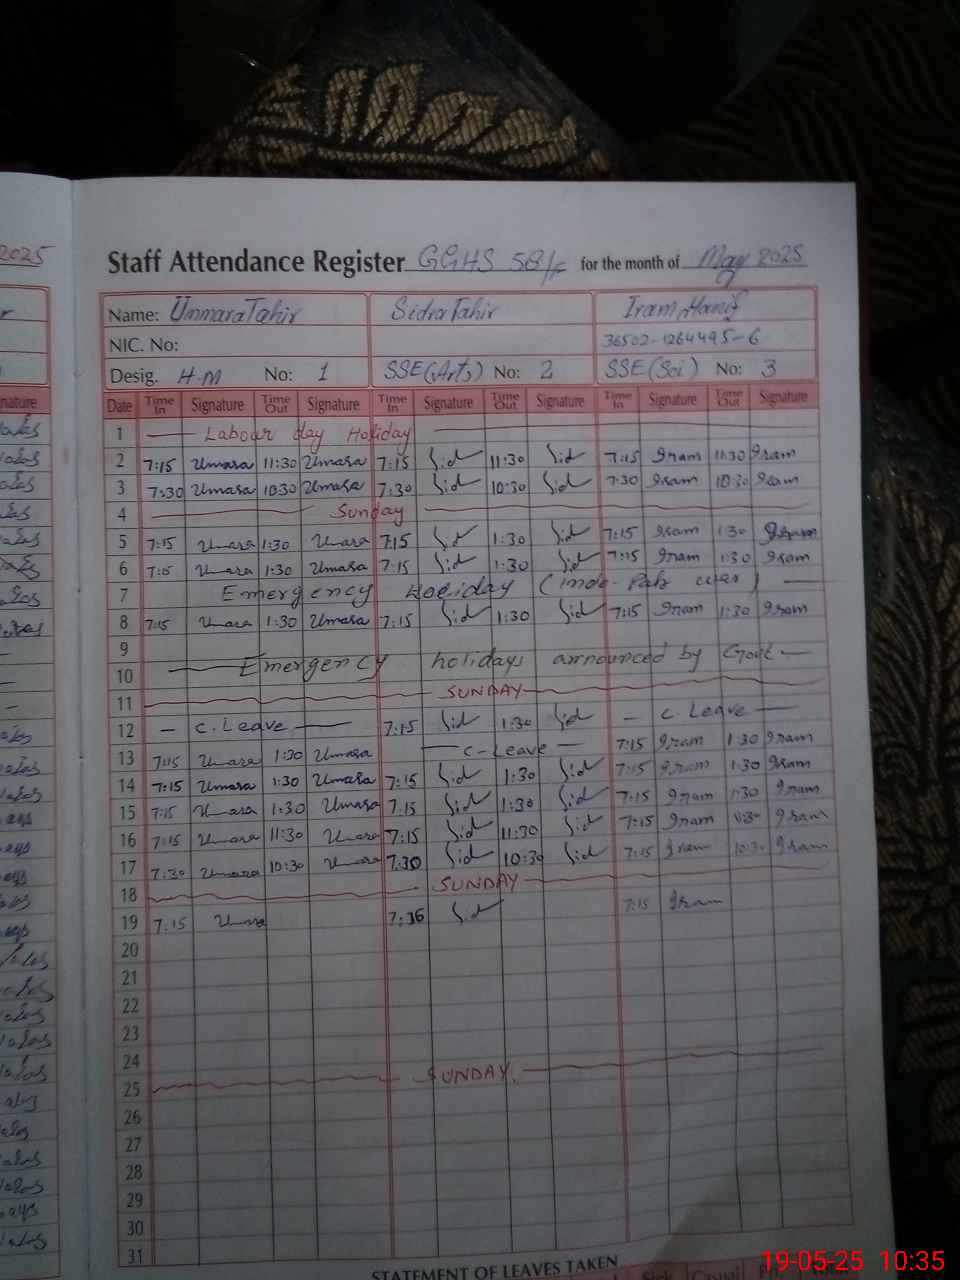 2025
Staff Attendance Register GGHS 58/F for the month of May 2025
Name: Ummara Tahir Sidra Tahir Iram Hanif
NIC. No: 36502-1264495-6
Desig. H-M No: 1 SSE(Arts) No: 2 SSE (Sci) No: 3
Date Time In Signature Time Out Signature Time In Signature Time Out Signature Time In Signature Time Out Signature
1 Labour day Holiday
2 7:15 Umara 11:30 Umara 7:15 Sid 11:30 Sid 7:15 Iram 11:30 Iram
3 7:30 Umara 10:30 Umara 7:30 Sid 10:30 Sid 7:30 Iram 10:30 Iram
4 Sunday
5 7:15 Umara 1:30 Umara 7:15 Sid 1:30 Sid 7:15 Iram 1:30 Iram
6 7:15 Umara 1:30 Umara 7:15 Sid 1:30 Sid 7:15 Iram 1:30 Iram
7 Emergency Holiday (Indo-Pak war)
8 7:15 Umara 1:30 Umara 7:15 Sid 1:30 Sid 7:15 Iram 1:30 Iram
9
10 Emergency holidays announced by Govt
11 SUNDAY
12 - C. Leave - 7:15 Sid 1:30 Sid - C. Leave -
13 7:15 Umara 1:30 Umara - C-Leave - 7:15 Iram 1:30 Iram
14 7:15 Umara 1:30 Umara 7:15 Sid 1:30 Sid 7:15 Iram 1:30 Iram
15 7:15 Umara 1:30 Umara 7:15 Sid 1:30 Sid 7:15 Iram 1:30 Iram
16 7:15 Umara 11:30 Umara 7:15 Sid 11:30 Sid 7:15 Iram 11:30 Iram
17 7:30 Umara 10:30 Umara 7:30 Sid 10:30 Sid 7:15 Iram 10:30 Iram
18 SUNDAY
19 7:15 Umara 7:36 Sid 7:15 Iram
20
21
22
23
24
25 SUNDAY.
26
27
28
29
30
31
STATEMENT OF LEAVES TAKEN
Sick Casual
19-05-25 10:35